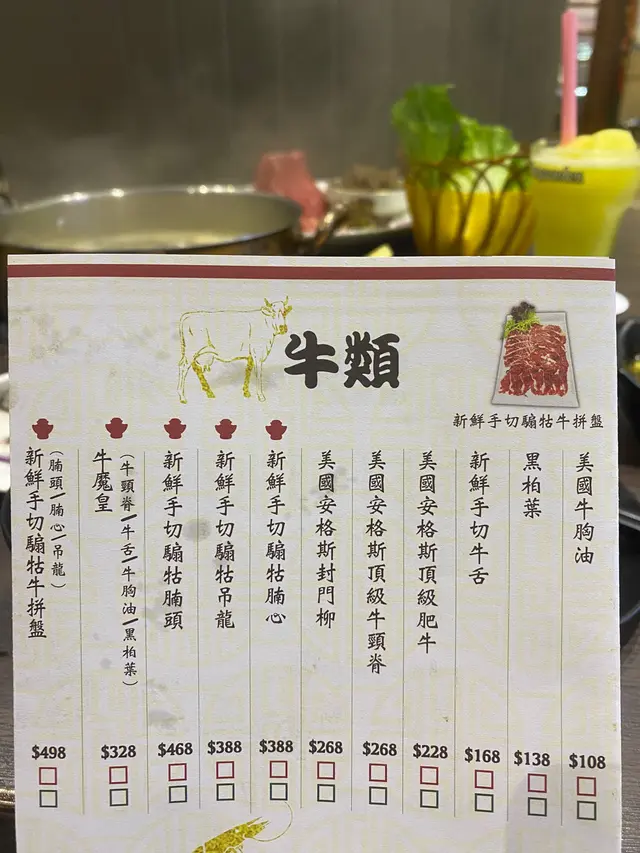 牛類
新鮮手切騸牯牛拼盤
美國牛胸油
$108
黑柏葉
$138
新鮮手切牛舌
$168
美國安格斯頂級肥牛
$228
美國安格斯頂級牛頸脊
$268
美國安格斯封門柳
$268
新鮮手切騸牯腩心
$388
新鮮手切騸牯吊龍
$388
新鮮手切騸牯腩頭
$468
牛魔皇
(牛頸脊/牛舌/牛胸油/黑柏葉)
$328
新鮮手切騸牯牛拼盤
(腩頭/腩心/吊龍)
$498